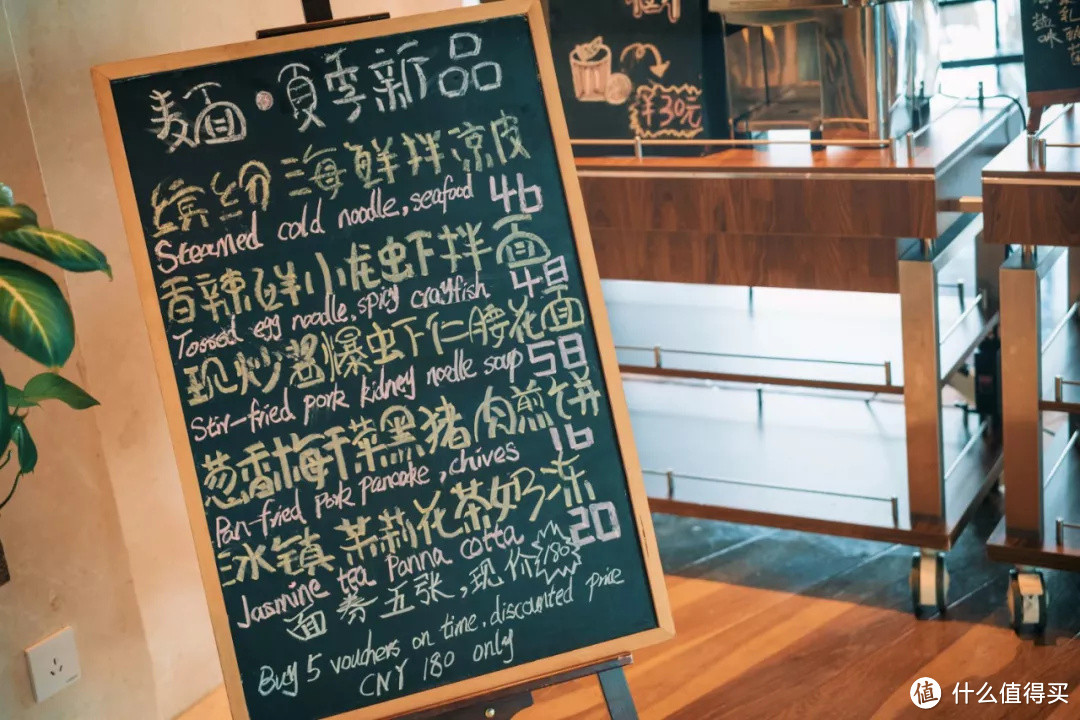 麺·夏季新品
缤纷海鲜拌凉皮
Steamed cold noodle, seafood 46
香辣鲜小龙虾拌面
Tossed egg noodle, spicy crayfish 48
现炒酱爆虾仁腰花面
Stir-fried pork kidney noodle soup 58
葱香梅干菜黑猪肉煎饼
Pan-fried pork pancake, chives 16
冰镇茉莉花茶奶冻
Jasmine tea Panna cotta 20
面券五张,现价180
Buy 5 vouchers on time, discounted price
CNY 180 only
¥30元
值 什么值得买